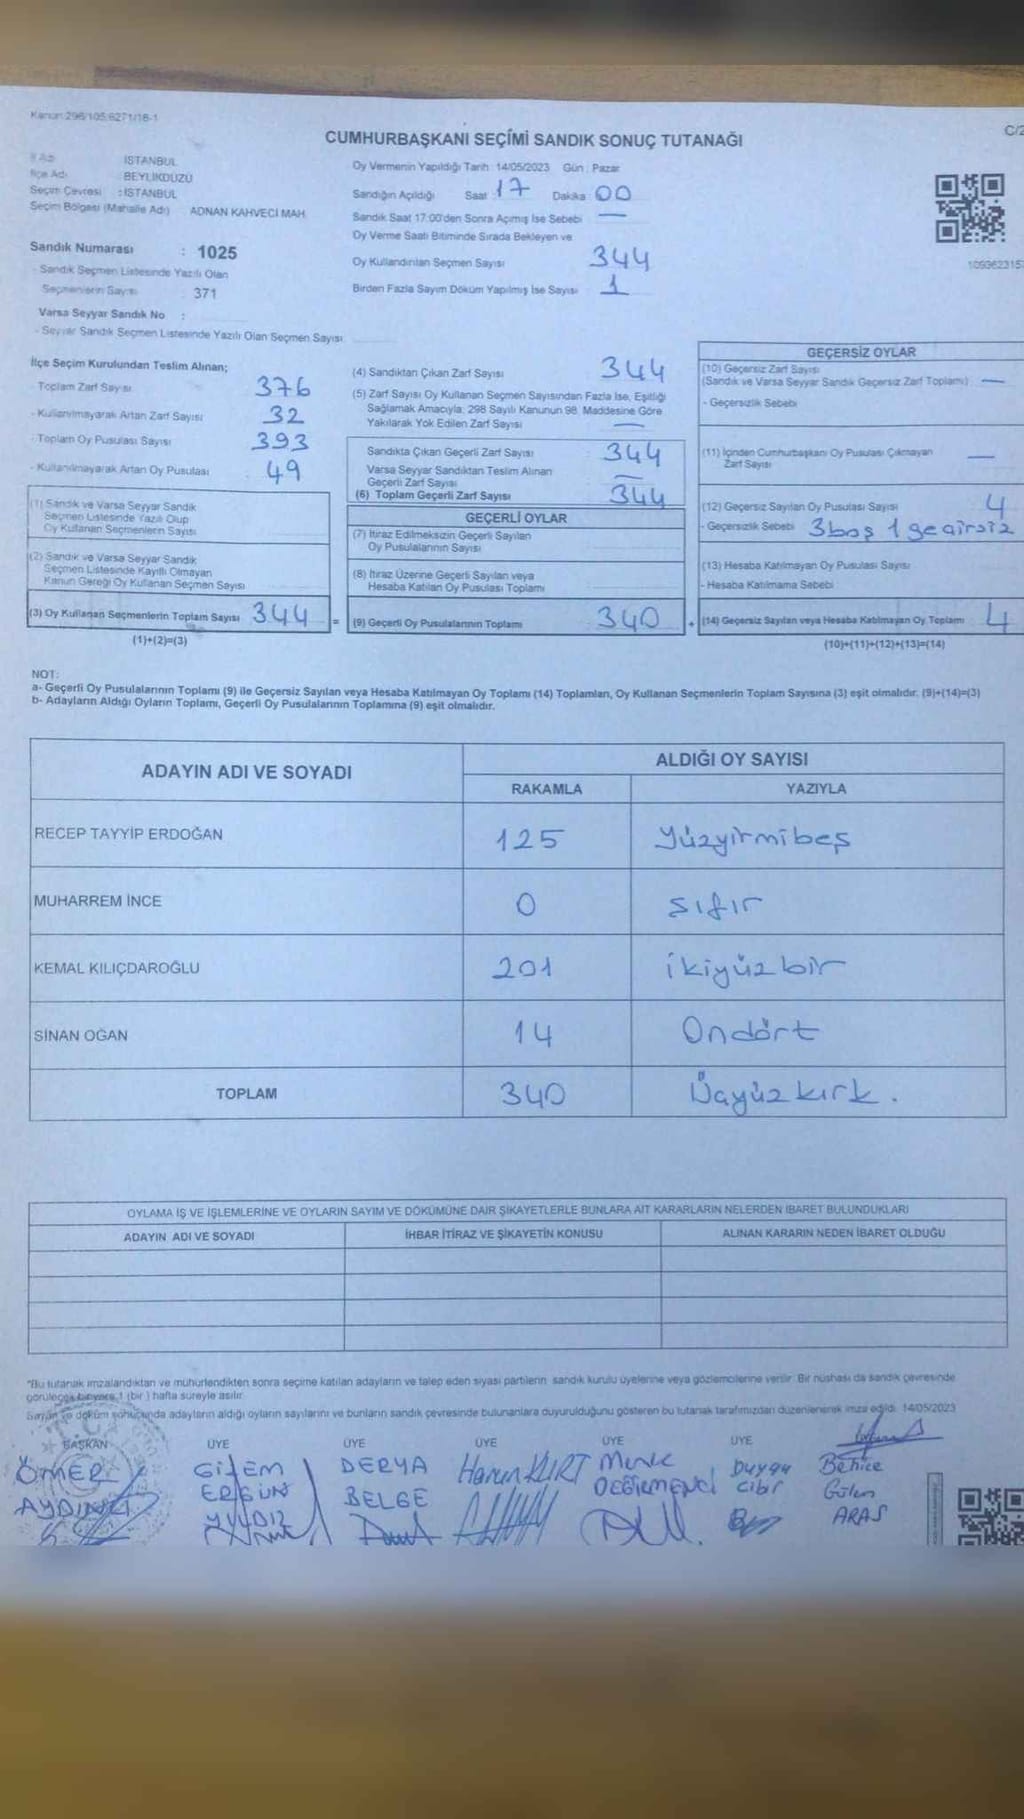 Kanun 296/105.6271/18-1
C/2
CUMHURBAŞKANI SEÇİMİ SANDIK SONUÇ TUTANAĞI
İl Adı ISTANBUL
İlçe Adı BEYLİKDÜZÜ
Seçim Çevresi : İSTANBUL
Seçim Bölgesi (Mahalle Adı) ADNAN KAHVECİ MAH.
Sandık Numarası : 1025
- Sandık Seçmen Listesinde Yazılı Olan
Seçmenlerin Sayısı 371
Varsa Seyyar Sandık No :
- Seyyar Sandık Seçmen Listesinde Yazılı Olan Seçmen Sayısı
Oy Vermenin Yapıldığı Tarih :14/05/2023 Gün : Pazar
Sandığın Açıldığı Saat : 17 Dakika 00
Sandık Saat 17:00'den Sonra Açımış İse Sebebi —
Oy Verme Saati Bitiminde Sırada Bekleyen ve
Oy Kullandırılan Seçmen Sayısı 344
Birden Fazla Sayım Döküm Yapılmış İse Sayısı 1
İlçe Seçim Kurulundan Teslim Alınan;
- Toplam Zarf Sayısı 376
- Kullanılmayarak Artan Zarf Sayısı 32
- Toplam Oy Pusulası Sayısı 393
- Kullanılmayarak Artan Oy Pusulası 49
(1) Sandık ve Varsa Seyyar Sandık
Seçmen Listesinde Yazılı Olup
Oy Kullanan Seçmenlerin Sayısı
(2) Sandık ve Varsa Seyyar Sandık
Seçmen Listesinde Kayıtlı Olmayan
Kanun Gereği Oy Kullanan Seçmen Sayısı
(3) Oy Kullanan Seçmenlerin Toplam Sayısı 344 =
(1)+(2)=(3)
(4) Sandıktan Çıkan Zarf Sayısı 344
(5) Zarf Sayısı Oy Kullanan Seçmen Sayısından Fazla İse, Eşitliği
Sağlamak Amacıyla; 298 Sayılı Kanunun 98. Maddesine Göre
Yakılarak Yok Edilen Zarf Sayısı —
Sandıkta Çıkan Geçerli Zarf Sayısı 344
Varsa Seyyar Sandıktan Teslim Alınan
Geçerli Zarf Sayısı —
(6) Toplam Geçerli Zarf Sayısı 344
GEÇERLİ OYLAR
(7) İtiraz Edilmeksizin Geçerli Sayılan
Oy Pusulalarının Sayısı
(8) İtiraz Üzerine Geçerli Sayılan veya
Hesaba Katılan Oy Pusulası Toplamı
(9) Geçerli Oy Pusulalarının Toplamı 340 +
GEÇERSİZ OYLAR
(10) Geçersiz Zarf Sayısı
(Sandık ve Varsa Seyyar Sandık Geçersiz Zarf Toplamı) —
- Geçersizlik Sebebi
(11) İçinden Cumhurbaşkanı Oy Pusulası Çıkmayan
Zarf Sayısı —
(12) Geçersiz Sayılan Oy Pusulası Sayısı 4
- Geçersizlik Sebebi 3 boş 1 geçirsiz
(13) Hesaba Katılmayan Oy Pusulası Sayısı
- Hesaba Katılmama Sebebi
(14) Geçersiz Sayılan veya Hesaba Katılmayan Oy Toplamı 4
(10)+(11)+(12)+(13)=(14)
NOT:
a- Geçerli Oy Pusulalarının Toplamı (9) ile Geçersiz Sayılan veya Hesaba Katılmayan Oy Toplamı (14) Toplamları, Oy Kullanan Seçmenlerin Toplam Sayısına (3) eşit olmalıdır. (9)+(14)=(3)
b- Adayların Aldığı Oyların Toplamı, Geçerli Oy Pusulalarının Toplamına (9) eşit olmalıdır.
ADAYIN ADI VE SOYADI
ALDIĞI OY SAYISI
RAKAMLA YAZIYLA
RECEP TAYYİP ERDOĞAN 125 Yüzyirmibeş
MUHARREM İNCE 0 Sıfır
KEMAL KILIÇDAROĞLU 201 ikiyüzbir
SİNAN OĞAN 14 Ondört
TOPLAM 340 Üçyüzkırk.
OYLAMA İŞ VE İŞLEMLERİNE VE OYLARIN SAYIM VE DÖKÜMÜNE DAİR ŞİKAYETLERLE BUNLARA AİT KARARLARIN NELERDEN İBARET BULUNDUKLARI
ADAYIN ADI VE SOYADI İHBAR İTİRAZ VE ŞİKAYETİN KONUSU ALINAN KARARIN NEDEN İBARET OLDUĞU
*Bu tutanak imzalandıktan ve mühürlendikten sonra seçime katılan adayların ve talep eden siyasi partilerin sandık kurulu üyelerine veya gözlemcilerine verilir. Bir nüshası da sandık çevresinde
görülecek bir yere 1 (bir ) hafta süreyle asılır.
Sayım ve döküm sonucunda adayların aldığı oyların sayılarını ve bunların sandık çevresinde bulunanlara duyurulduğunu gösteren bu tutanak tarafımızdan düzenlenerek imza edildi. 14/05/2023
BAŞKAN ÜYE ÜYE ÜYE ÜYE ÜYE
ÖMER GİZEM DERYA Harun KURT Merve Duygu Behice
AYDINLI ERGÜN BELGE DEĞİRMENCİ Cibir Gülen
YILDIZ ARAS